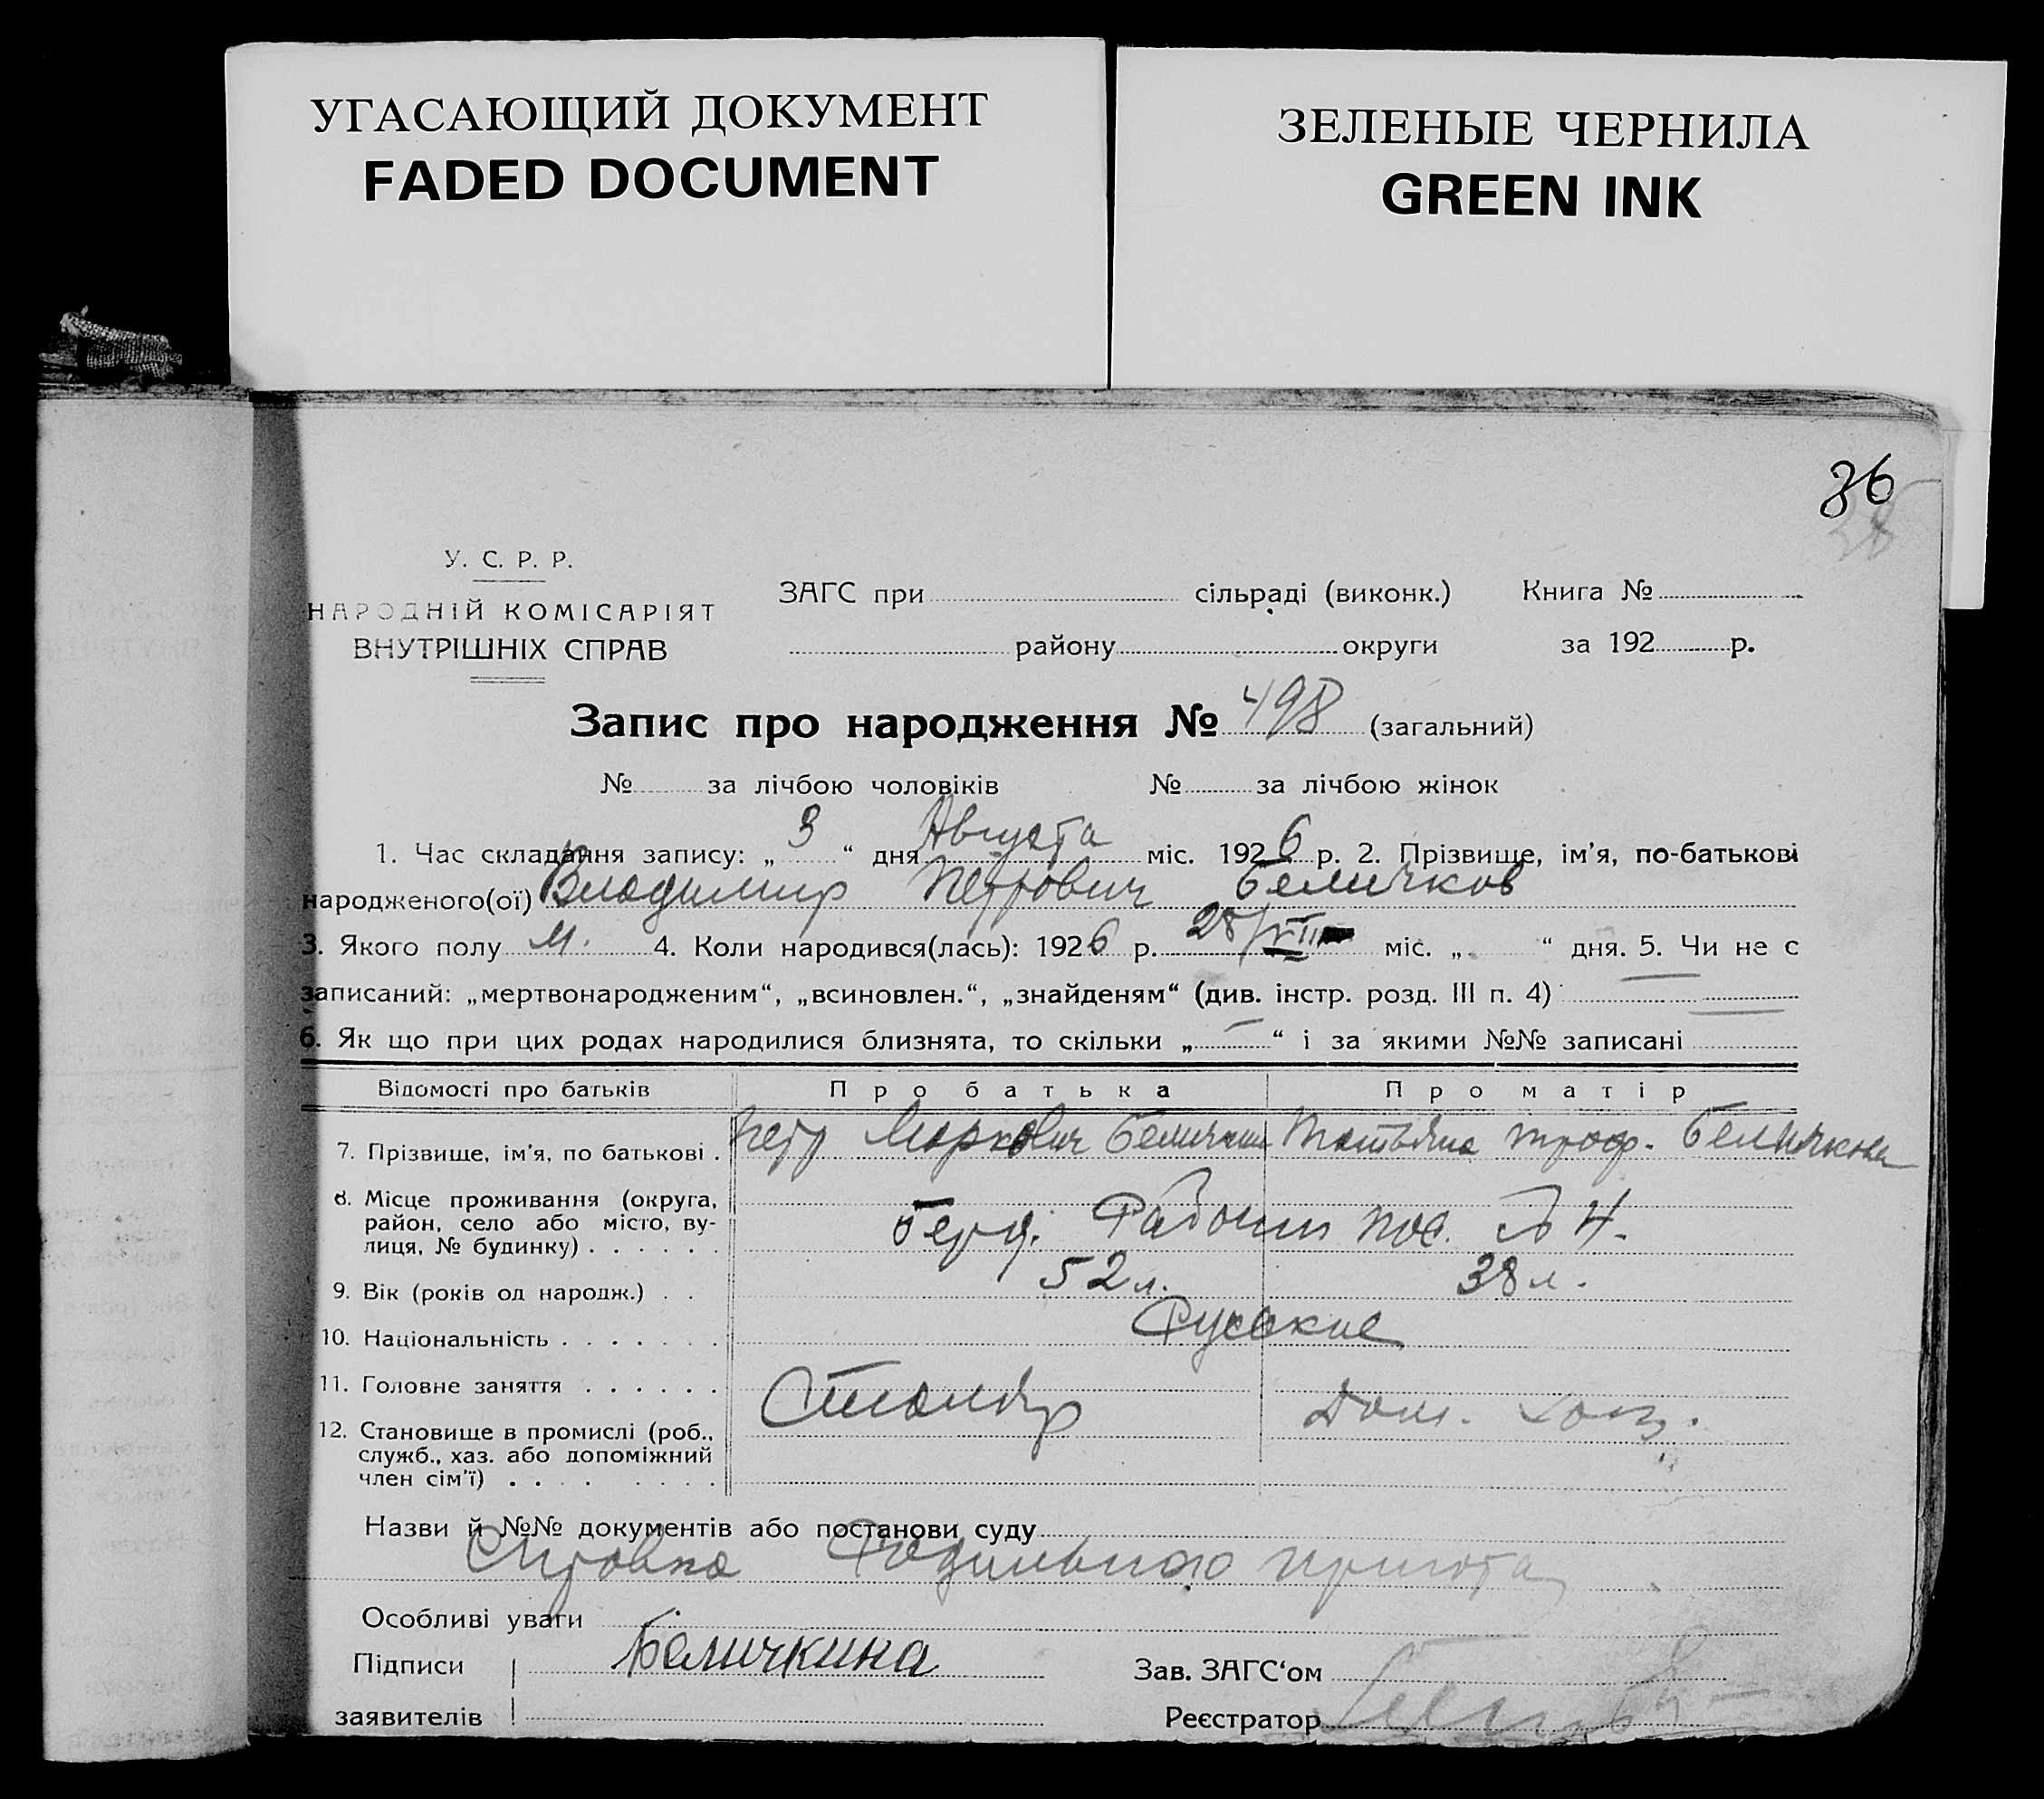 УГАСАЮЩИЙ ДОКУМЕНТ
FADED DOCUMENT
ЗЕЛЕНЫЕ ЧЕРНИЛА
GREEN INK
36
38
У. С. Р. Р.
НАРОДНІЙ КОМІСАРІЯТ
ВНУТРІШНІХ СПРАВ
ЗАГС при сільраді (виконк.) Книга №
району округи за 192 р.
Запис про народження № 498 (загальний)
№ за лічбою чоловіків № за лічбою жінок
1. Час складання запису: „ 3 “ дня Августа міс. 1926 р. 2. Прізвище, ім’я, по-батькові
народженого(ої) Владимир Петрович Беличков
3. Якого полу м. 4. Коли народився(лась): 1926 р. 28/VII міс. „ “ дня. 5. Чи не є
записаний: „мертвонародженим“, „всиновлен.“, „знайденям“ (див. інстр. розд. III п. 4) —
6. Як що при цих родах народилися близнята, то скільки „ — “ і за якими №№ записані —
Відомості про батьків Про батька Про матір
7. Прізвище, ім’я, по батькові . Петр Маркович Беличкин Татьяна Троф. Беличкова
8. Місце проживання (округа,
район, село або місто, вулиця, № будинку) . . . . . . Берд. Рабочий пос. № 4.
9. Вік (років од народж.) . . 52 л. 38 л.
10. Національність . . . . . . . Русские
11. Головне заняття . . . . . . Столяр Дом. хоз.
12. Становище в промислі (роб.,
служб., хаз. або допоміжний
член сім’ї) . . . . . . . .
Назви й №№ документів або постанови суду
Справка Родильного приюта
Особливі уваги
Підписи Беличкина Зав. ЗАГС‘ом
заявителів Реєстратор